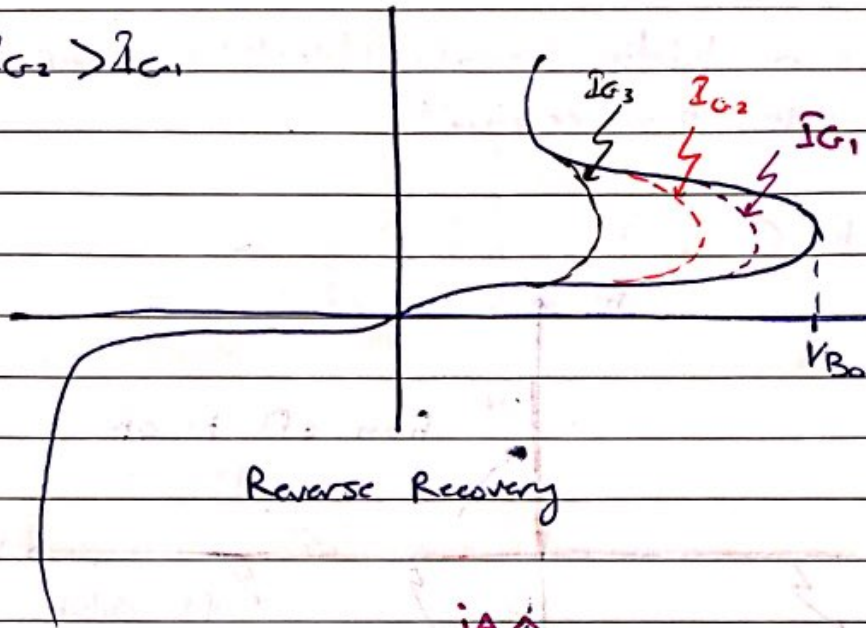 IG2 > IG1
IG3
IG2
IG1
VBO
Reverse Recovery
i